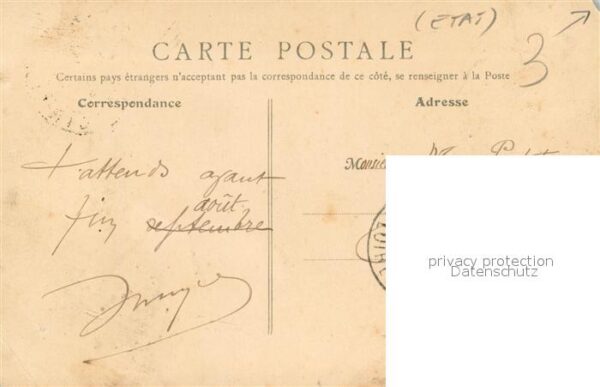 (ETAT)
3
CARTE POSTALE
Certains pays étrangers n'acceptant pas la correspondance de ce côté, se renseigner à la Poste
Correspondance
Adresse
t'attends avant
août
fin septembre
Monsieu
LOIRE
privacy protection
Datenschutz